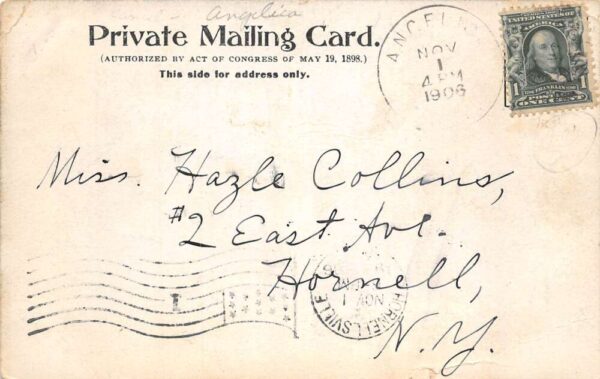 Angelica
Private Mailing Card.
(AUTHORIZED BY ACT OF CONGRESS OF MAY 19, 1898.)
This side for address only.
NOV
1
4 PM
1906
UNITED STATES OF
AMERICA
FRANKLIN
1 POSTAGE 1
ONE CENT
Miss. Hazle Collins,
#2 East Ave.
Hornell,
N.Y.
1
HORNELLSVILLE
NOV 1